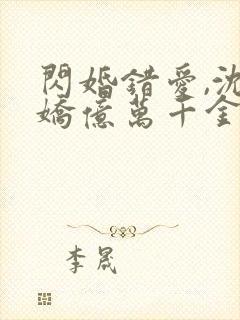 閃婚錯愛,沈
嬌億萬千金
李晟